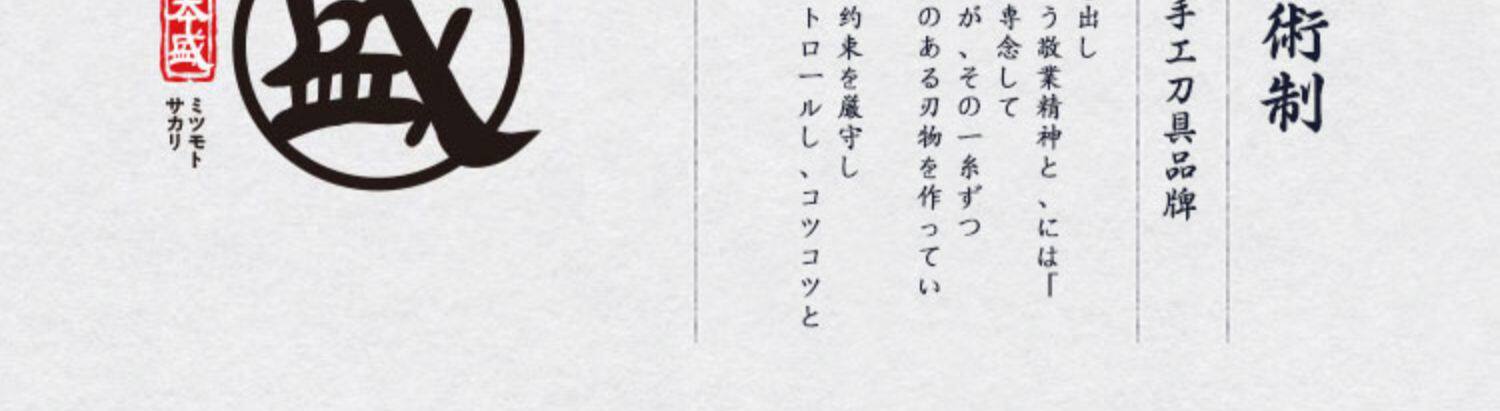 術制
手工刀具品牌
出し
う敬業精神と、には「
専念して
が、その一糸ずつ
のある刃物を作ってい
約束を厳守し
トロールし、コツコツと
盛
本盛
ミツモト
サカリ